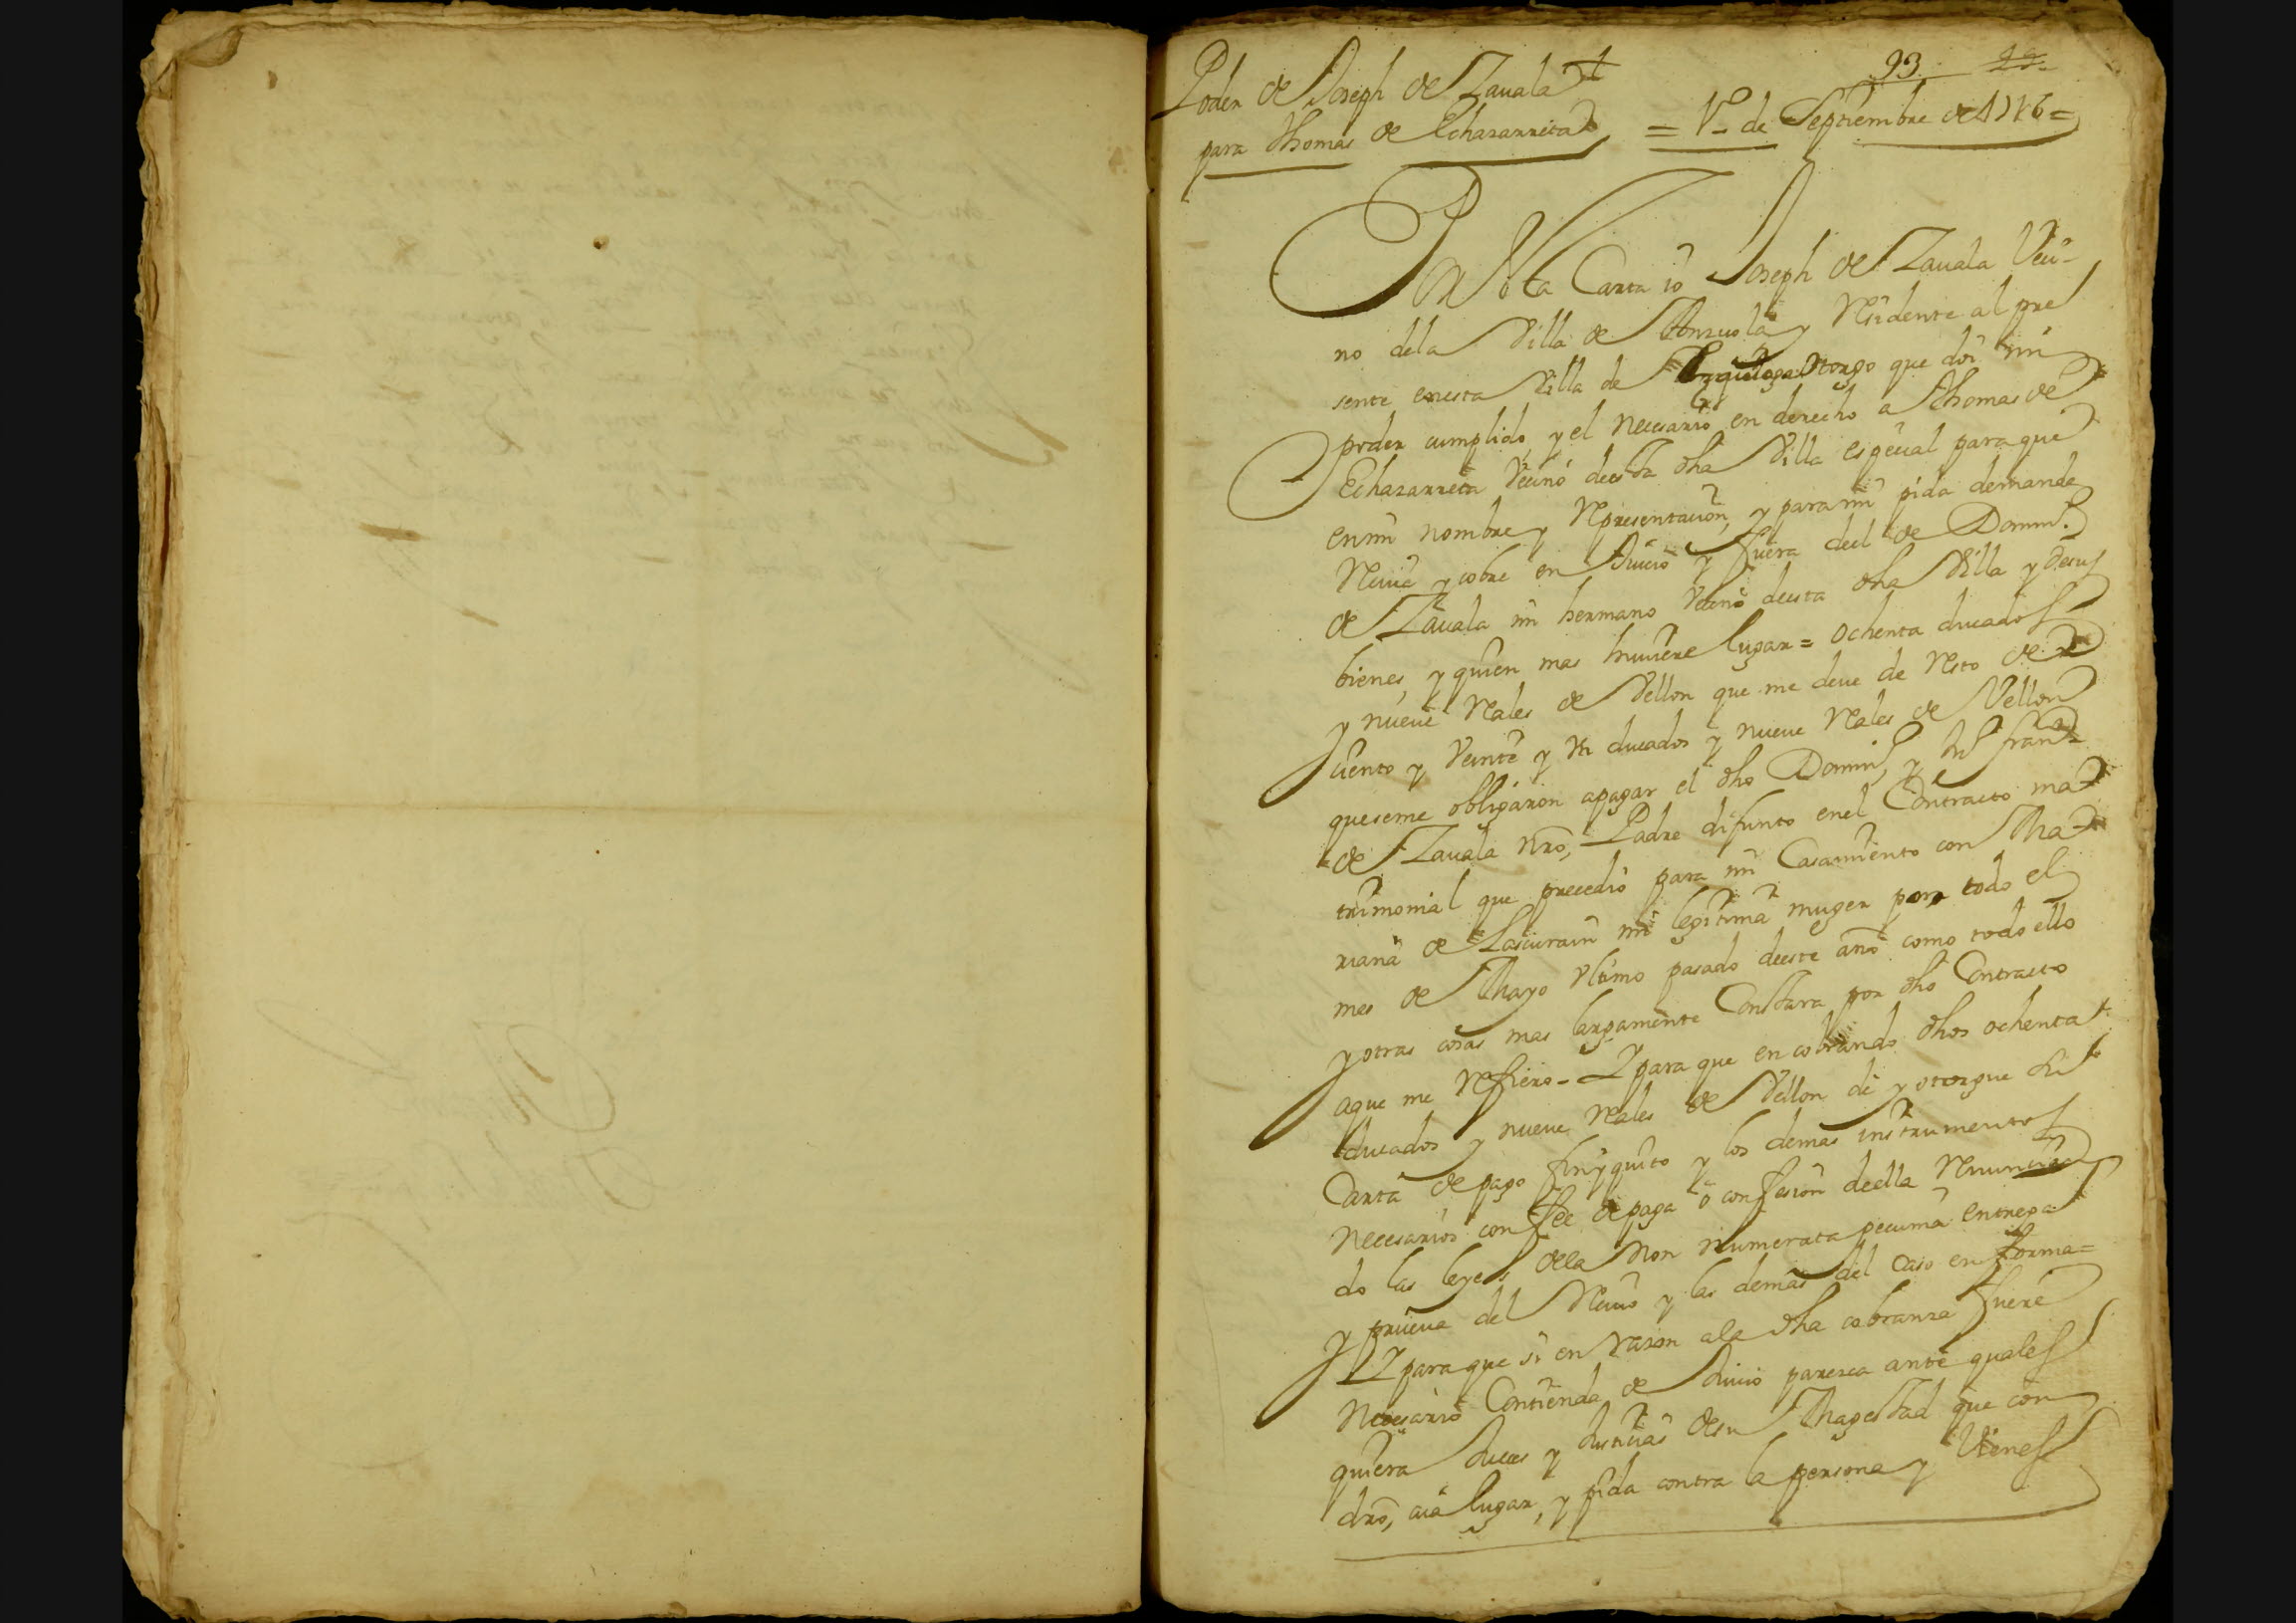 93. 22.
Poder de Joseph de Zauala
para Thomas de Echazarreta = 1º de Septiembre de 1716=
Por esta Carta io Joseph de Zauala Veci-
no dela Villa de Anzuola y Residente al pre
sente enesta Villa de otorgo que doi mi
poder cumplido, y el necesario en derecho a Thomas de
Echazarreta Vecino deesta dha Villa especial para que
enmi nombre y Representacion, y para mi pida demande
Reciue y cobre en Juicio y fuera deel de Domin.º
de Zauala mi hermano Vecino deesta dha Villa y desus
bienes, y quien mas huuiere lugar = ochenta ducados
y nueue Reales de Vellon que me deue de Resto de
ciento y Veinte y ducados y nueue Reales de Vellon
queseme obligaron apagar el dho Domin.º y fran.
de Zauala nro, Padre difunto enel Contracto ma
trimonial que precedio para mi Casamiento con Ma
riana de Lascurain mi legitima muger por todo el
mes de Mayo Vltimo pasado deeste año como todo ello
y otras cosas mas largamente Constara por dho Contracto
aque me Refiero - Y para que en cobrando dhos ochenta
ducados y nueue Reales de Vellon dè y otorgue
Carta de pago finiquito y los demas instrumentos
necesarios con fee de paga ò confesion deella Renuncian
do las leyes dela Non numerata pecunia entrega
y prueua del Reciuo y las demas del caso en forma=
Y para que si en razon ala dha cobranza fuere
Necesario Contienda de Juicio paresca ante quales
quiera Jueces y Justicias desu Magestad que con
dro, aia lugar, y pida contra la persona y Vienes